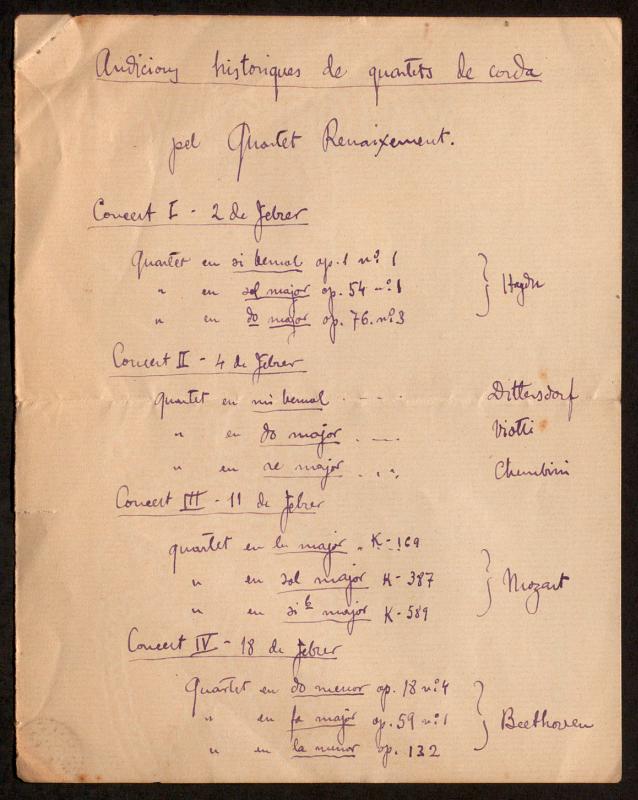 Audicions històriques de quartets de corda
pel Quartet Renaixement.
Concert I - 2 de Febrer
Quartet en si bemol op. 1 nº 1
" en sol major op. 54 nº 1
" en do major op. 76. nº 3
} Haydn
Concert II - 4 de Febrer
quartet en mi bemol . - - . Dittersdorf
" en do major . - - . Viotti
" en re major . . " Cherubini
Concert III - 11 de Febrer
quartet en la major . K - 169
" en sol major K - 387
" en si b major K - 589
} Mozart
Concert IV - 18 de Febrer
Quartet en do menor op. 18 nº 4
" en fa major op. 59 nº 1
" en la menor op. 132
} Beethoven